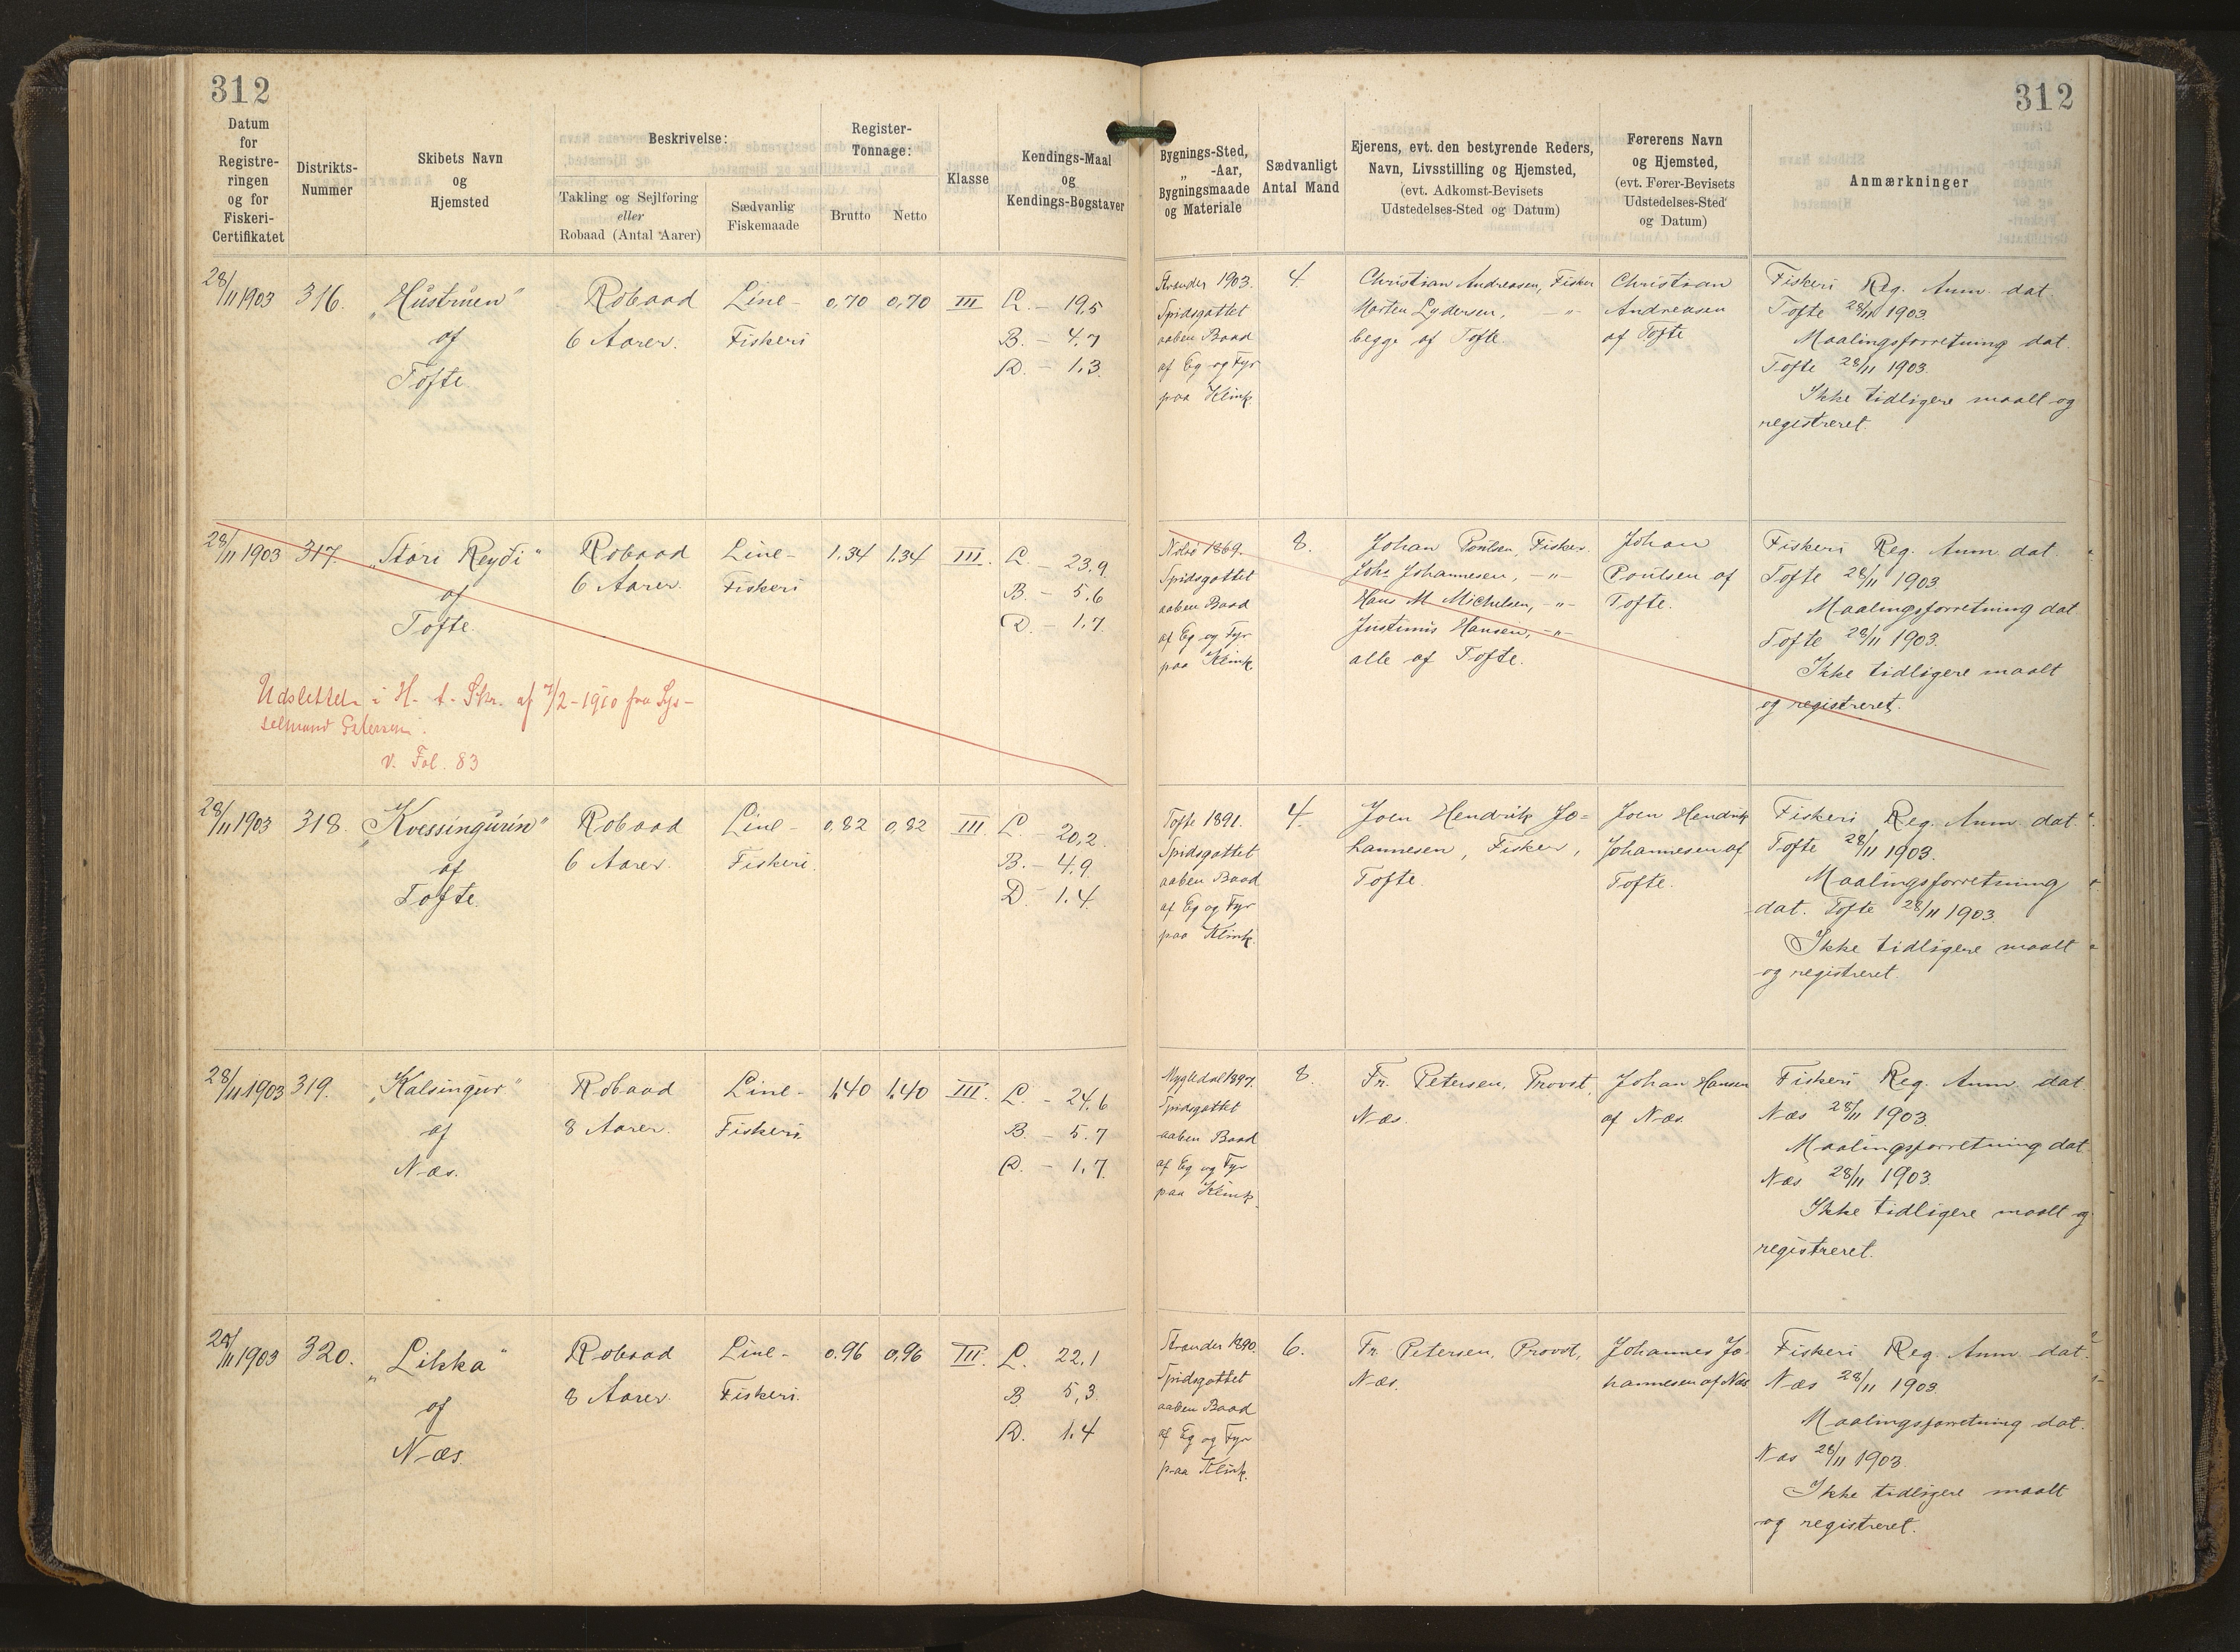 312
312
Datum
for
Registre-
ringen
og for
Fiskeri-
Certifikatet
Distrikts-
Nummer
Skibets Navn
og
Hjemsted
Beskrivelse:
Takling og Sejlføring
eller
Robaad (Antal Aarer)
Sædvanlig
Fiskemaade
Register-
Tonnage:
Brutto
Netto
Klasse
Kendings-Maal
og
Kendings-Bogstaver
Bygnings-Sted,
„ -Aar,
Bygningsmaade
og Materiale
Sædvanligt
Antal Mand
Ejerens, evt. den bestyrende Reders,
Navn, Livsstilling og Hjemsted,
(evt. Adkomst-Bevisets
Udstedelses-Sted og Datum)
Førerens Navn
og Hjemsted,
(evt. Fører-Bevisets
Udstedelses-Sted
og Datum)
Anmærkninger
28/11 1903
316.
„Hustruen"
af
Tofte
Robaad
6 Aarer.
Line-
Fiskeri
0,70
0,70
III
L. - 19,5
B. - 4,7
D. - 1,3
Strender 1903.
Spidsgattet
aaben Baad
af Eg og Fyr
paa Klink.
4.
Christian Andreasen, Fisker
Morten Lydersen, -"-
begge af Tofte.
Christian
Andreasen
af Tofte
Fiskeri Reg. Anm. dat.
Tofte 28/11 1903.
Maalingsforretning dat.
Tofte 28/11 1903.
Ikke tidligere maalt og
registreret.
28/11 1903
317.
„Stóri Reydi"
af
Tofte.
Robaad
6 Aarer.
Line-
Fiskeri
1,34
1,34
III.
L. - 23,9
B. - 5,6
D. - 1,7
Nolsø 1869.
Spidsgattet
aaben Baad
af Eg og Fyr
paa Klink
8.
Johan Poulsen, Fisker.
Johs Johannesen, -"-
Hans M Michelsen, -"-
Justinus Hansen, -"-
alle af Tofte.
Johan
Poulsen af
Tofte.
Fiskeri Reg. Anm. dat.
Tofte 28/11 1903.
Maalingsforretning dat
Tofte 28/11 1903.
Ikke tidligere maalt
og registreret.
Udslettet i H. t. Skr. af 7/2-1910 fra Sys-
selmand Petersen.
v. Fol. 83
28/11 1903
318.
„Kvessingurin"
af
Tofte.
Robaad
6 Aarer.
Line-
Fiskeri.
0,82
0,82
III.
L. - 20,2
B. - 4,9
D. - 1,4
Tofte 1891.
Spidsgattet
aaben Baad
af Eg og Fyr
paa Klink.
4.
Joen Hendrik Jo=
hannesen, Fisker,
Tofte.
Joen Hendrik
Johannesen af
Tofte.
Fiskeri Reg. Anm. dat.
Tofte 28/11 1903.
Maalingsforretning
dat. Tofte 28/11 1903.
Ikke tidligere maalt
og registreret.
28/11 1903
319.
„Kalsingur"
af
Næs.
Robaad
8 Aarer.
Line-
Fiskeri.
1,40
1,40
III.
L. - 24,6
B. - 5,7
D. - 1,7
1897.
Spidsgattet
aaben Baad
af Eg og Fyr
paa Klink.
8.
Fr. Petersen, Provst,
Næs.
Johan Hansen
af Næs.
Fiskeri Reg. Anm. dat.
Næs 28/11 1903.
Maalingsforretning dat.
Næs 28/11 1903.
Ikke tidligere maalt og
registreret.
28/11 1903
320.
„Likka"
af
Næs.
Robaad
8 Aarer.
Line-
Fiskeri.
0,96
0,96
III.
L. 22,1
B. 5,3
D. 1,4
Strender 1890.
Spidsgattet
aaben Baad
af Eg og Fyr
paa Klink.
6.
Fr. Petersen, Provst,
Næs.
Johannes Jo-
hannesen af Næs
Fiskeri Reg. Anm. dat.
Næs 28/11 1903.
Maalingsforretning dat.
Næs 28/11 1903.
Ikke tidligere maalt
og registreret.